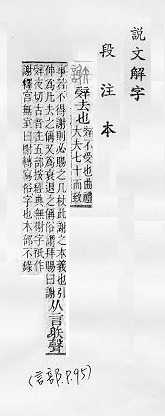 說文解字
段注本
謝
辤去也
辤不受也曲禮
大夫七十而致
事若不得謝則必賜之几杖此謝之本義也引
伸為凡去之偁又為衰退之偁俗謂拜賜曰謝
从言䠶聲
辤夜切古音在五部按經典無榭字衹作
謝釋宮無室曰榭轉寫俗字也木部不錄
(言部.P.95)